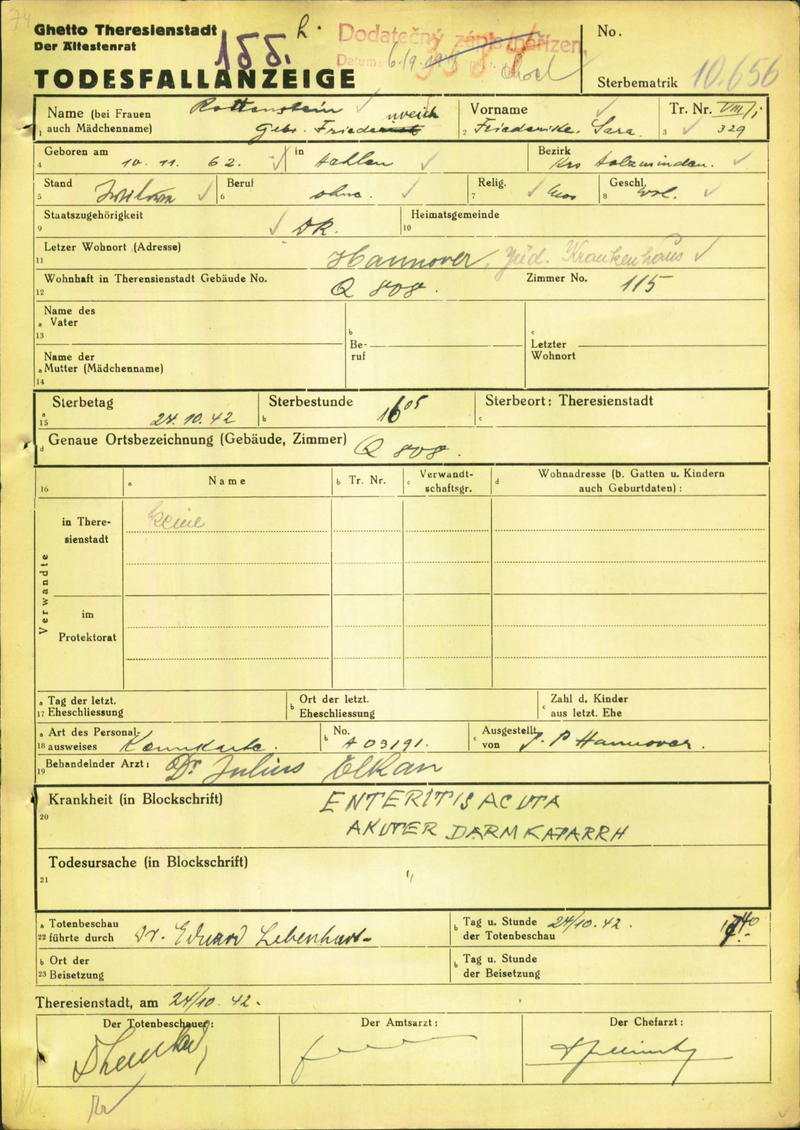 Ghetto Theresienstadt
Der Ältestenrat
TODESFALLANZEIGE
155.
Dodatečný zápis nařízen.
Datum: 6./9.
No.
Sterbematrik 10.656
Name (bei Frauen auch Mädchenname) Rottenstein
geb. Friedenreich
1
Vorname
2 Friederike Sara
Tr. Nr. VIII/1
3 329
Geboren am
4 10. 11. 62.
in
Bezirk
Krs Holzminden.
Stand
5
Beruf
6 ohne.
Relig.
7
Geschl.
8
Staatszugehörigkeit
9 DR.
Heimatsgemeinde
10
Letzer Wohnort (Adresse)
11 Hannover, Jüd. Krankenhaus
Wohnhaft in Theresienstadt Gebäude No.
12 Q 808.
Zimmer No. 115
Name des
a Vater
13
b
Be-
ruf
c
Letzter
Wohnort
Name der
a Mutter (Mädchenname)
14
a Sterbetag
15 24. 10. 42
Sterbestunde
b 16 05
Sterbeort: Theresienstadt
c
d Genaue Ortsbezeichnung (Gebäude, Zimmer) Q 808.
16
a Name
b Tr. Nr.
c Verwandt-
schaftsgr.
d Wohnadresse (b. Gatten u. Kindern
auch Geburtdaten):
Verwandte
in There-
sienstadt
keine
im
Protektorat
a Tag der letzt.
17 Eheschliessung
b Ort der letzt.
Eheschliessung
c Zahl d. Kinder
aus letzt. Ehe
a Art des Personal-
18 ausweises Kennkarte.
b No. A 03191.
c Ausgestellt
von P. P Hannover.
19 Behandelnder Arzt: Dr. Julius Elkan
Krankheit (in Blockschrift)
20
ENTERITIS ACUTA
AKUTER DARMKATARRH
Todesursache (in Blockschrift)
21
a Totenbeschau
22 führte durch Dr. Eduard
b Tag u. Stunde
der Totenbeschau 24/10. 42.
b Ort der
23 Beisetzung
b Tag u. Stunde
der Beisetzung
Theresienstadt, am 24/10. 42.
Der Totenbeschauer:
Der Amtsarzt:
Der Chefarzt: